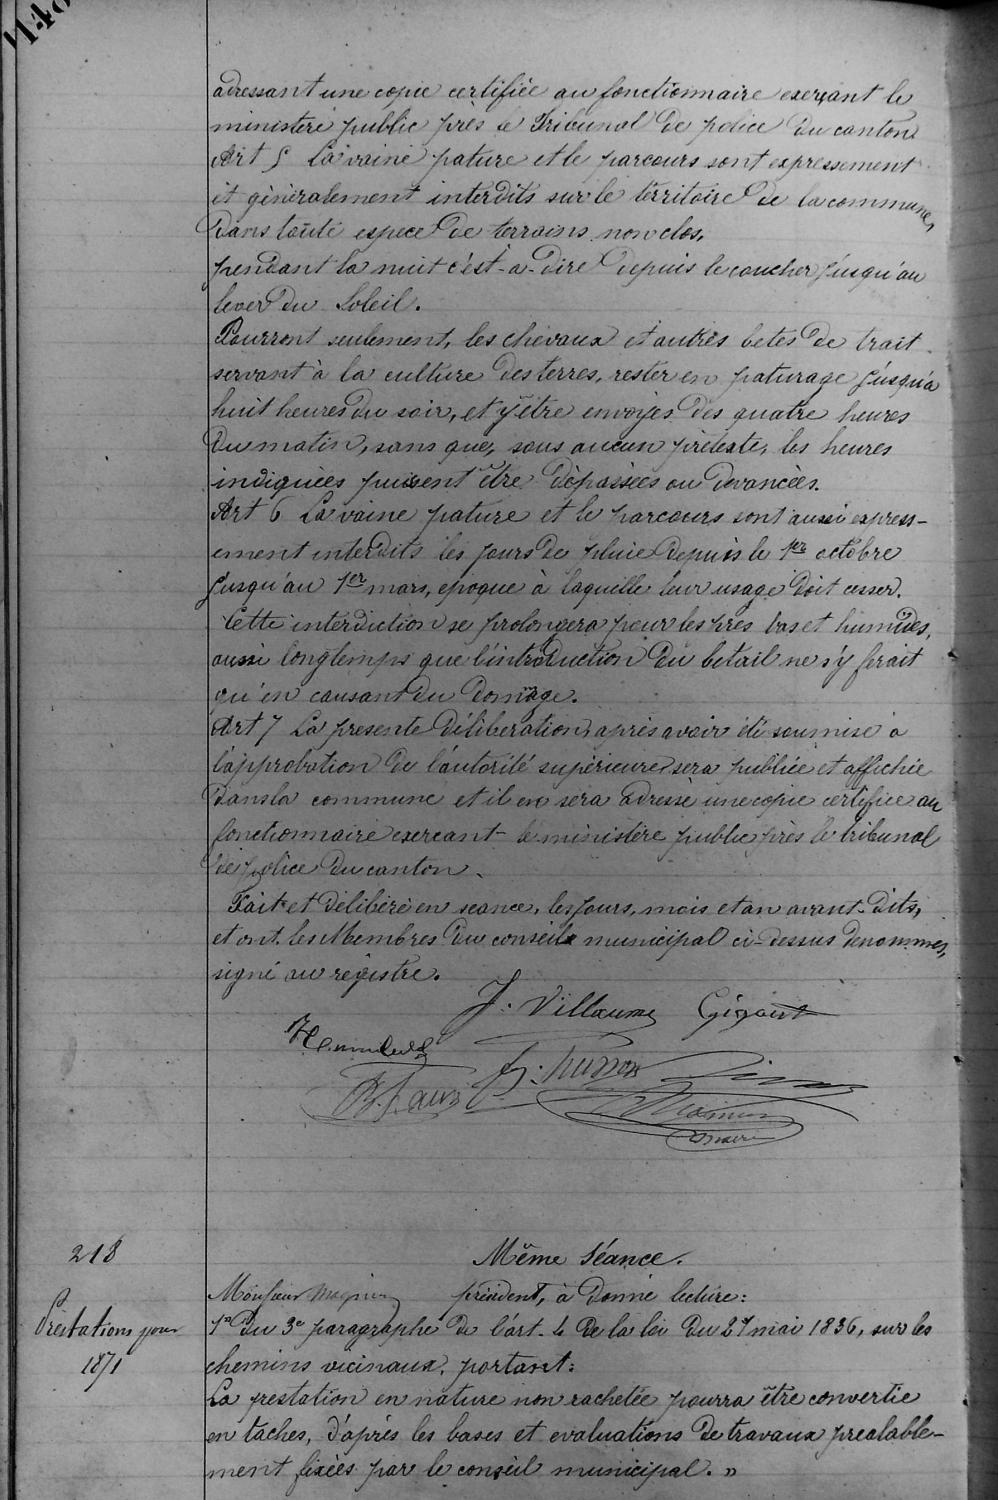 148
adressant une copie certifiée au fonctionnaire exerçant le
ministere public près le Tribunal de police du canton
Art 5 La vaine pature et le parcours sont expressement
et généralement interdits sur le térritoire de la commune,
dans toute espece de terrains non clos,
pendant la nuit c'est-a-dire depuis le coucher jusqu'au
lever du Soleil.
Pourront seulement, les chevaux et autres betes de trait
servant à la culture des terres, rester en paturage jusqu'a
huit heures du soir, et y être envoyés dès quatre heures
du matin, sans que, sous aucun prétexte, les heures
indiquées puissent être dépassées ou devancées.
Art 6 La vaine pature et le parcours sont aussi express-
ement interdits les jours de pluie depuis le 1er octobre
jusqu'au 1er mars, epoque à laquelle leur usage doit cesser.
Cette interdiction se prolongera pour les prés bas et humides,
aussi longtemps que l'introduction du betail ne s'y ferait
qu'en causant du domage.
Art 7 La presente délibération, après avoir été soumise à
l'approbation de l'autorité supérieure, sera publiée et affichée
dans la commune et il en sera adressé une copie certifiée au
fonctionnaire exercant le ministère public près le tribunal
de police du canton.
Fait et délibéré en seance, les jours, mois et an avant-dits,
et ont les Membres du conseil municipal ci-dessus denommés,
signé au régistre.
J. Villaume Gigout
B. Faure h. husson
maire
218
Même Séance.
Monsieur président, à donné lecture:
Préstations pour
1871
1° du 3e paragraphe de l'art. 4 de la loi du 21 mai 1836, sur les
chemins vicinaux, portant:
La prestation en nature non rachetée pourra être convertie
en taches, d'après les bases et evaluations de travaux prealable-
ment fixées par le conseil municipal. »